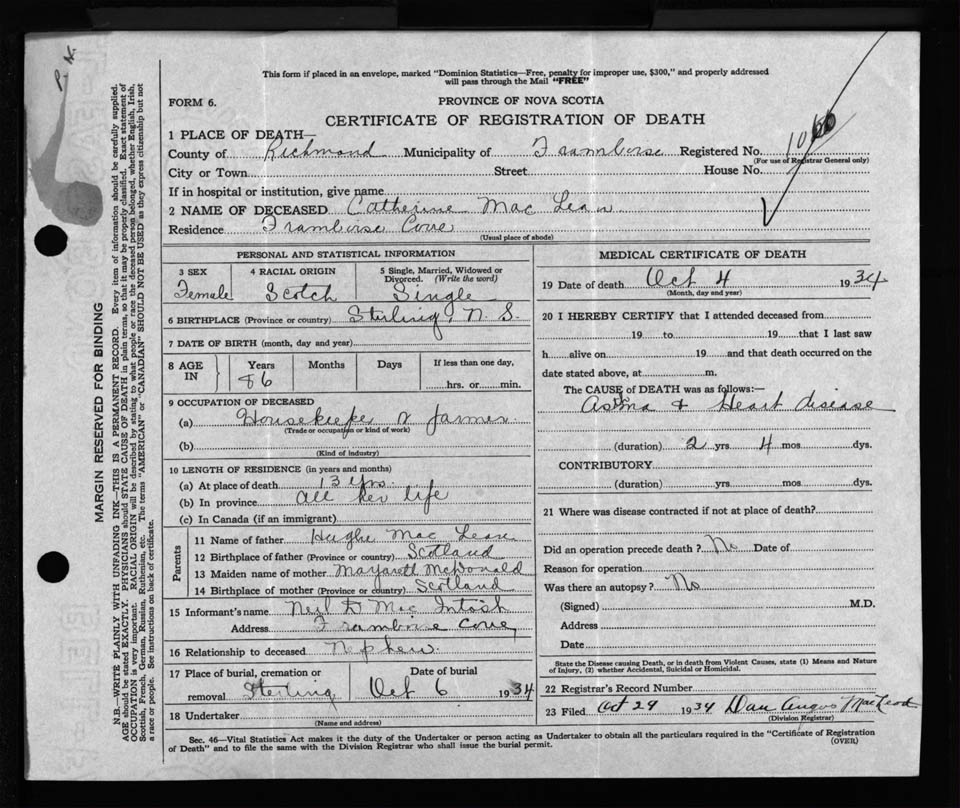 This form if placed in an envelope, marked "Dominion Statistics—Free, penalty for improper use, $300," and properly addressed
will pass through the Mail "FREE"
FORM 6.
PROVINCE OF NOVA SCOTIA
CERTIFICATE OF REGISTRATION OF DEATH
1 PLACE OF DEATH—
County of Richmond Municipality of Framboise Registered No.
(For use of Registrar General only)
City or Town Street House No.
If in hospital or institution, give name
2 NAME OF DECEASED Catherine Mac Lean
Residence Framboise Cove
(Usual place of abode)
PERSONAL AND STATISTICAL INFORMATION
3 SEX 4 RACIAL ORIGIN 5 Single, Married, Widowed or
Divorced. (Write the word)
Female Scotch Single
6 BIRTHPLACE (Province or country) Sterling, N. S.
7 DATE OF BIRTH (month, day and year)
8 AGE Years Months Days If less than one day,
IN 86 hrs. or min.
9 OCCUPATION OF DECEASED
(a) Housekeeper farmer
(Trade or occupation or kind of work)
(b)
(Kind of industry)
10 LENGTH OF RESIDENCE (in years and months)
(a) At place of death 13 yrs.
(b) In province all her life
(c) In Canada (if an immigrant)
Parents
11 Name of father Hughe Mac Lean
12 Birthplace of father (Province or country) Scotland
13 Maiden name of mother Margarett McDonald
14 Birthplace of mother (Province or country) Scotland
15 Informant's name Neil D Mac Intosh
Address Framboise Cove
16 Relationship to deceased Nephew.
17 Place of burial, cremation or Date of burial
removal Sterling Oct 6 1934
18 Undertaker
(Name and address)
MEDICAL CERTIFICATE OF DEATH
19 Date of death Oct 4 1934
(Month, day and year)
20 I HEREBY CERTIFY that I attended deceased from
19 to 19 that I last saw
h alive on 19 and that death occurred on the
date stated above, at m.
The CAUSE of DEATH was as follows:—
Astma & Heart disease
(duration) 2 yrs 4 mos dys.
CONTRIBUTORY
(duration) yrs. mos. dys.
21 Where was disease contracted if not at place of death?
Did an operation precede death? No Date of
Reason for operation
Was there an autopsy? No
(Signed) M.D.
Address
Date
State the Disease causing Death, or in death from Violent Causes, state (1) Means and Nature
of Injury, (2) whether Accidental, Suicidal or Homicidal.
22 Registrar's Record Number
23 Filed Oct 29 1934 Dan Angus MacLeod
(Division Registrar)
Sec. 46—Vital Statistics Act makes it the duty of the Undertaker or person acting as Undertaker to obtain all the particulars required in the "Certificate of Registration
of Death" and to file the same with the Division Registrar who shall issue the burial permit.
(OVER)
MARGIN RESERVED FOR BINDING
N.B.—WRITE PLAINLY WITH UNFADING INK—THIS IS A PERMANENT RECORD. Every item of information should be carefully supplied.
AGE should be stated EXACTLY. PHYSICIANS should STATE CAUSE OF DEATH in plain terms, so that it may be properly classified. Exact statement of
OCCUPATION is very important. RACIAL ORIGIN will be described by stating to what people or race the deceased person belonged, whether English, Irish,
Scottish, French, German, Russian, Ruthenian, etc. The terms "AMERICAN" or "CANADIAN" SHOULD NOT BE USED as they express citizenship but not
a race or people. See instructions on back of certificate.